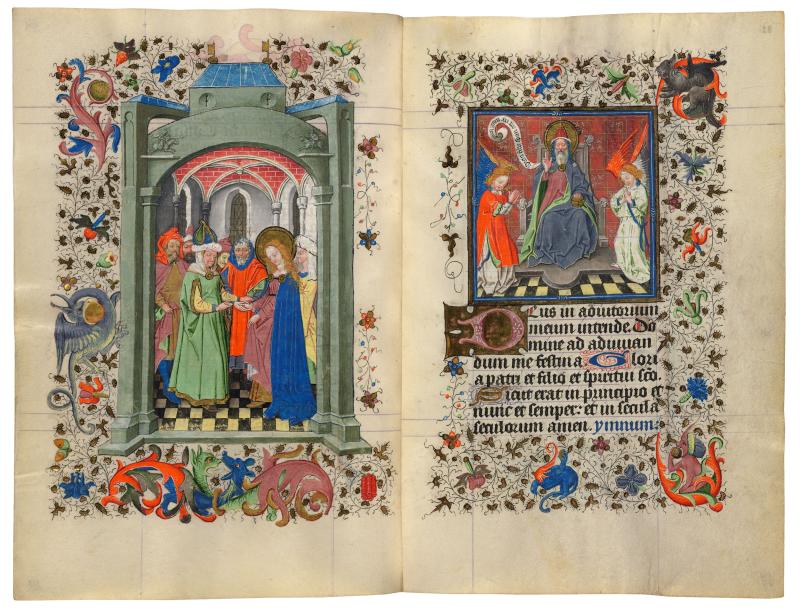 Deus in adiutorium
meum intende. Do
mine ad adiuuan
dum me festina. Glori
a patri et filio et spiritui sco.
Sicut erat in principio et
nunc et semper: et in secula
seculorum amen. ymnum: